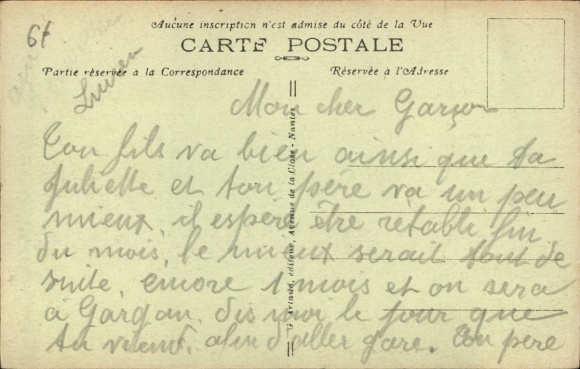 Aucune inscription n'est admise du côté de la Vue
6f
CARTE POSTALE
Partie réservée à la Correspondance
Réservée à l'Adresse
Lucien
Mon cher Garçon
Ton fils va bien ainsi que ta
Juliette et ton père va un peu
mieux, il espère être rétabli fin
du mois, le mieux serait tout de
suite, encore 1 mois et on sera
a Gargan, dis moi le jour que
tu viens, afin d'aller gare. Ton père
G. Artaud, éditeur, Avenue de la Close - Nantes